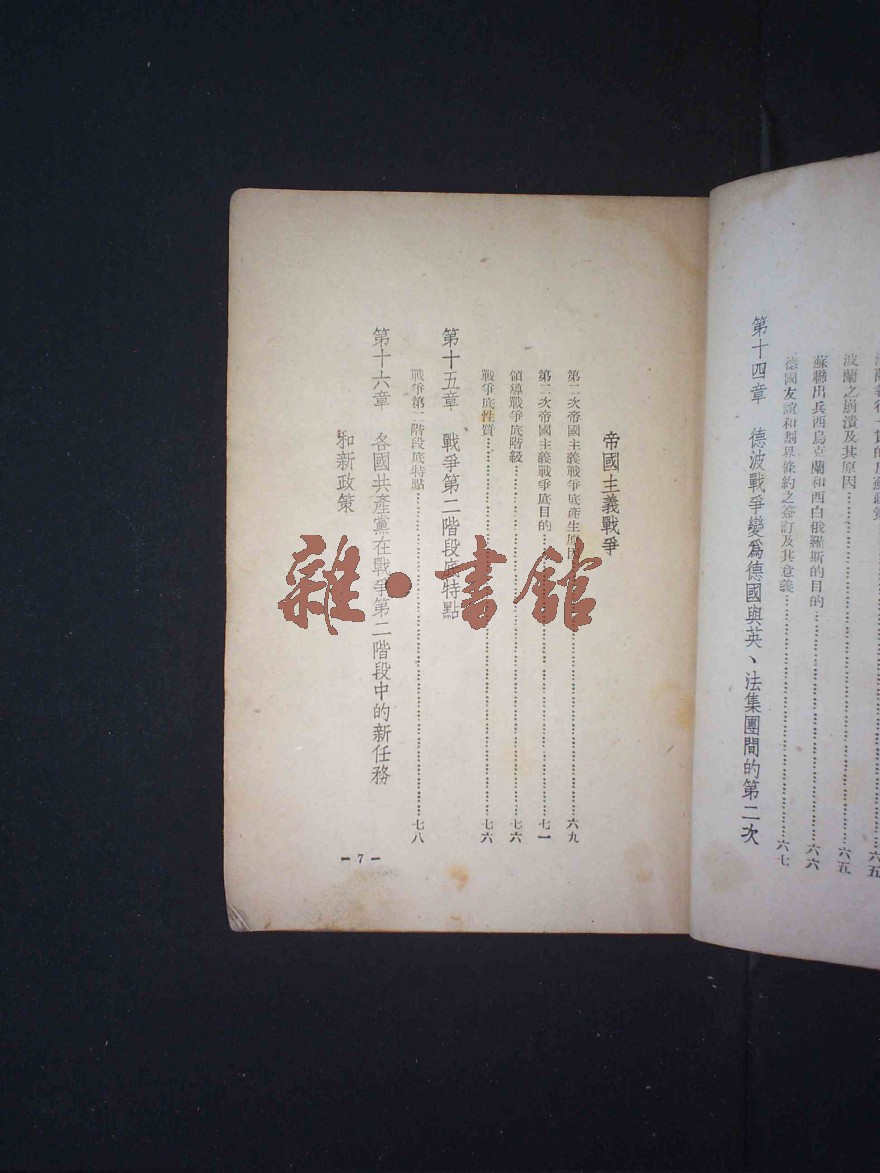 波蘭之崩潰及其原因……六五
蘇聯出兵西烏克蘭和西白俄羅斯的目的……六六
德國友誼和劃界條約之簽訂及其意義……六七
第十四章　德波戰爭變爲德國與英、法集團間的第二次
帝國主義戰爭
第二次帝國主義戰爭底產生原因……六九
第二次帝國主義戰爭底目的……七一
領導戰爭底階級……七六
戰爭底性質……七六
第十五章　戰爭第二階段底特點
戰爭第二階段底特點……七八
第十六章　各國共產黨在戰爭第二階段中的新任務
和新政策
— 7 —
雜·書館